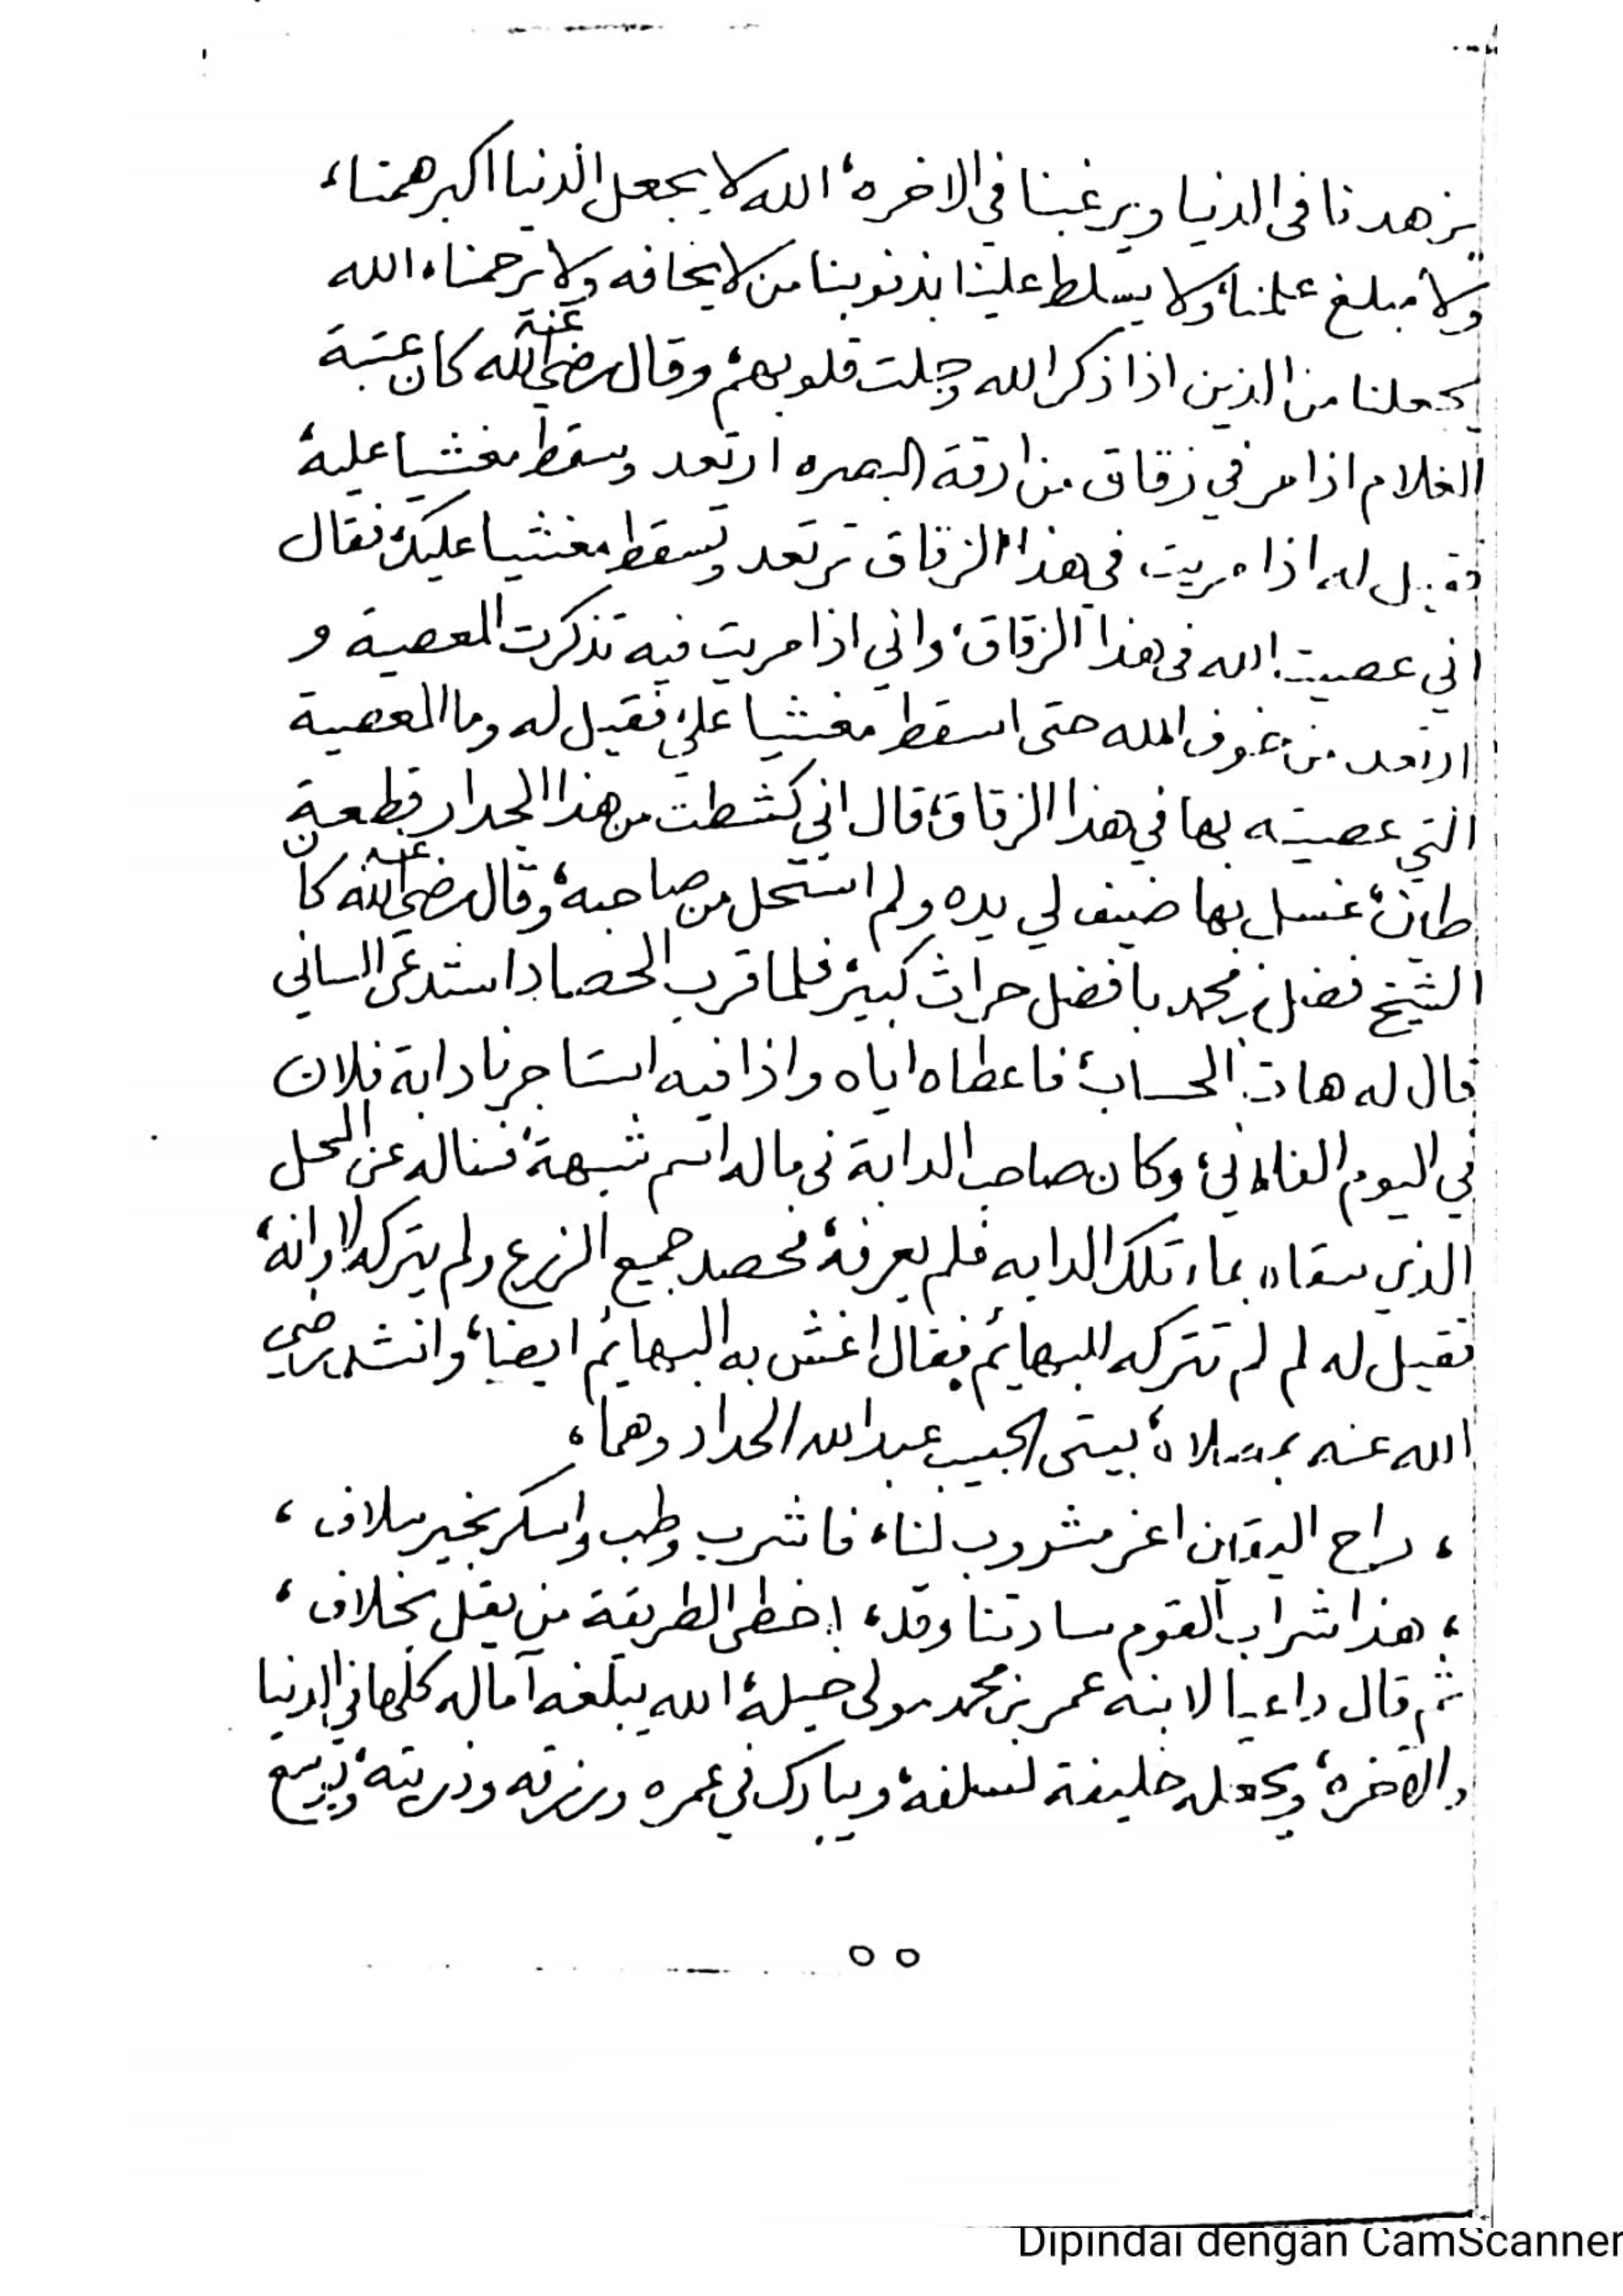 يزهدنا في الدنيا ويرغبنا في الاخره، الله لا يجعل الدنيا اكبر همنا،
ولا مبلغ علمنا، ولا يسلط علينا بذنوبنا من لا يخافه ولا يرحمنا، الله
يجعلنا من الذين اذا ذكر الله وجلت قلوبهم، وقال رضي الله عنه كان عتبة
الغلام اذا مر في زقاق من ازقة البصره ارتعد وسقط مغشيا عليه،
فقيل له اذا مريت في هذا الزقاق ترتعد وتسقط مغشيا عليك، فقال
اني عصيت الله في هذا الزقاق، واني اذا مريت فيه تذكرت المعصية و
ارتعد من خوف الله حتى اسقط مغشيا علي، فقيل له وما المعصية
التي عصيته بها في هذا الزقاق، قال اني كشطت من هذا الجدار قطعة
طين، غسل بها ضيف لي يده ولم استحل من صاحبه، وقال رضي الله عنه كان
الشيخ فضل بن محمد بافضل حراث كبير، فلما قرب الحصاد استدعى الساني
قال له هات الحساب، فاعطاه اياه واذا فيه استاجرنا دابة فلان
في اليوم الفلاني، وكان صاحب الدابة في ماله اسم شبهة، فساله عن المحل
الذي سقاه بماء تلك الدابه فلم يعرفه، فحصد جميع الزرع ولم يتركه لدوابه،
فقيل له لم لم تتركه للبهائم فقال اغش به البهائم ايضا، وانشد رضي
الله عنه بيتى الحبيب عبدالله الحداد وهما،
، راح اليقين اعز مشروب لنا، فاشرب وطب واسكر بخير سلاف،
، هذا شراب القوم سادتنا وقد، اخطى الطريقة من يقل بخلاف،
ثم قال داعيا لابنه عمر بن محمد مولى خيلة، الله يبلغه آماله كلها في الدنيا
والآخره، ويجعله خليفة لسلفه، ويبارك في عمره ورزقه وذريته، ويوسع
٥٥
Dipindai dengan CamScanner